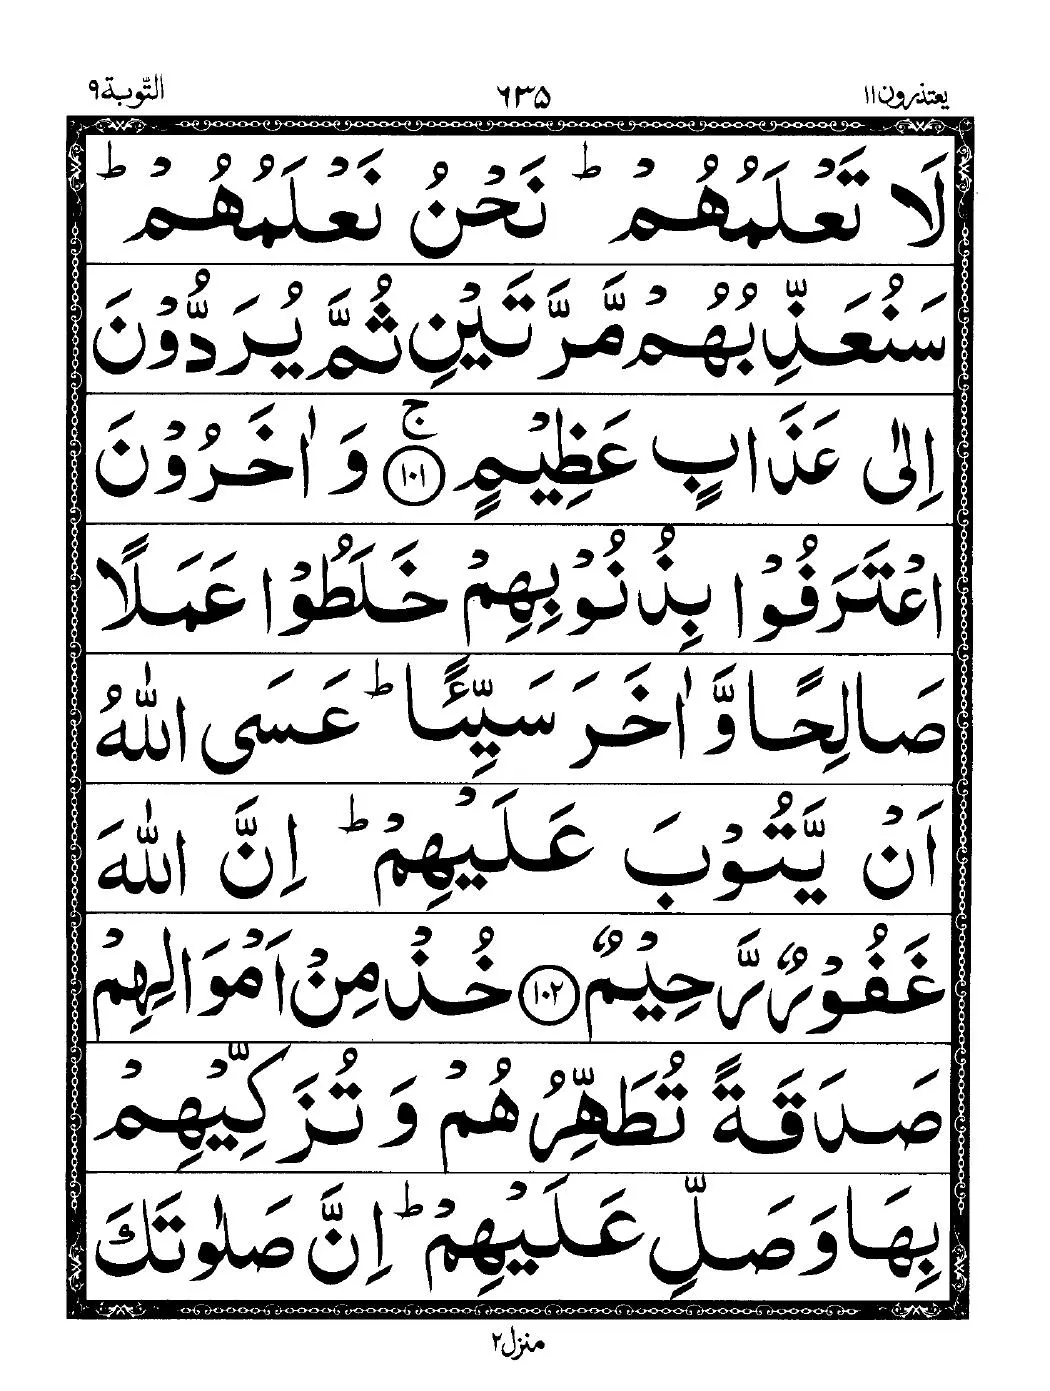 يعتذرون ١١ ٦٣۵ التّوبة ٩
لَا تَعْلَمُهُمْ ؕ نَحْنُ نَعْلَمُهُمْ ؕ
سَنُعَذِّبُهُمْ مَّرَّتَيْنِ ثُمَّ يُرَدُّوْنَ
اِلٰى عَذَابٍ عَظِيْمٍ ۚ ﴿۱۰۱﴾ وَ اٰخَرُوْنَ
اعْتَرَفُوْا بِذُنُوْبِهِمْ خَلَطُوْا عَمَلًا
صَالِحًا وَّاٰخَرَ سَيِّئًا ؕ عَسَى اللّٰهُ
اَنْ يَّتُوْبَ عَلَيْهِمْ ؕ اِنَّ اللّٰهَ
غَفُوْرٌ رَّحِيْمٌ ﴿۱۰۲﴾ خُذْ مِنْ اَمْوَالِهِمْ
صَدَقَةً تُطَهِّرُهُمْ وَ تُزَكِّيْهِمْ
بِهَا وَصَلِّ عَلَيْهِمْ ؕ اِنَّ صَلٰوتَكَ
منزل ٢